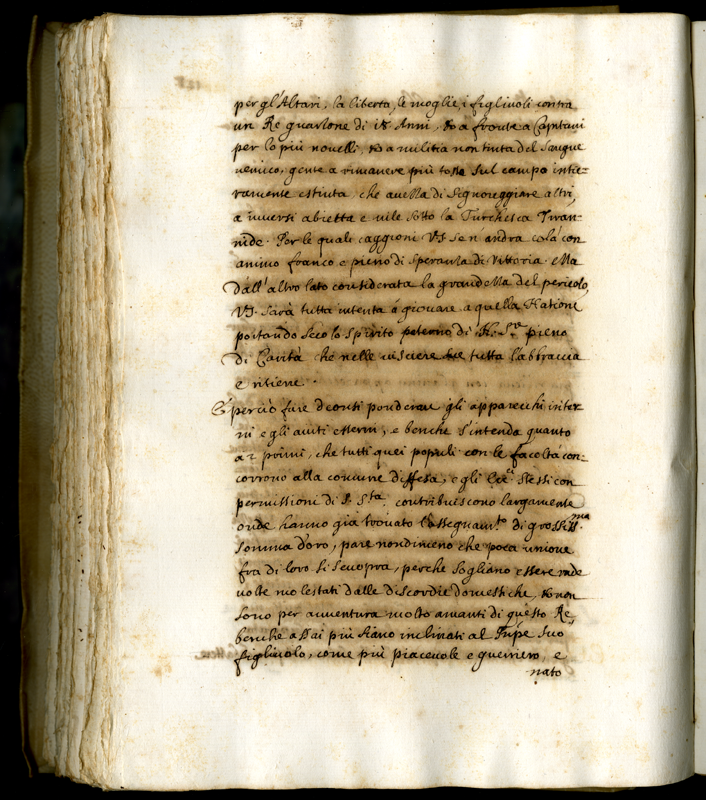 per gl'Altari, la liberta, le moglie, i figliuoli contra
un Re guarzone di 18 Anni, & a fronte a Capitani
per lo più nouelli, & a militia non tinta del sangue
nemico, gente a rimanere più tosto sul campo intie=
ramente estinta, che auezza di signoreggiare altri,
a uiuersi abietta e uile sotto la Turchesca Tiran=
nide. Per le quali caggioni VS se n'andrà colà con
animo franco e pieno di speranza di Vittoria. Ma
dall'altro lato considerata la grandezza del pericolo,
VS. sarà tutta intenta à giouare a quella Natione
portando seco lo spirito paterno di N. Sre pieno
di Carità che nelle uisciere tutta l'abbraccia
e ritiene.
E perciò fare deonsi ponderare gli apparecchi inter
ni e gli aiuti esterni, e benche s'intenda quanto
a i primi, che tutti quei populi con le facoltà con=
corrono alla comune diffesa, e gli Ecci stessi con
permissioni di S. Sta contribuiscono largamente
onde hanno già trouato l'assegnamto di grossissma
somma d'oro, pare nondimeno che poca unione
fra di loro si scuopra, perche sogliano essere rade
uolte molestati dalle discordie domestiche, & non
sono per auuentura molto amanti di questo Re,
benche assai più siano inclinati al Pnpe suo
figliuolo, come più piaceuole e guerriero, e
nato